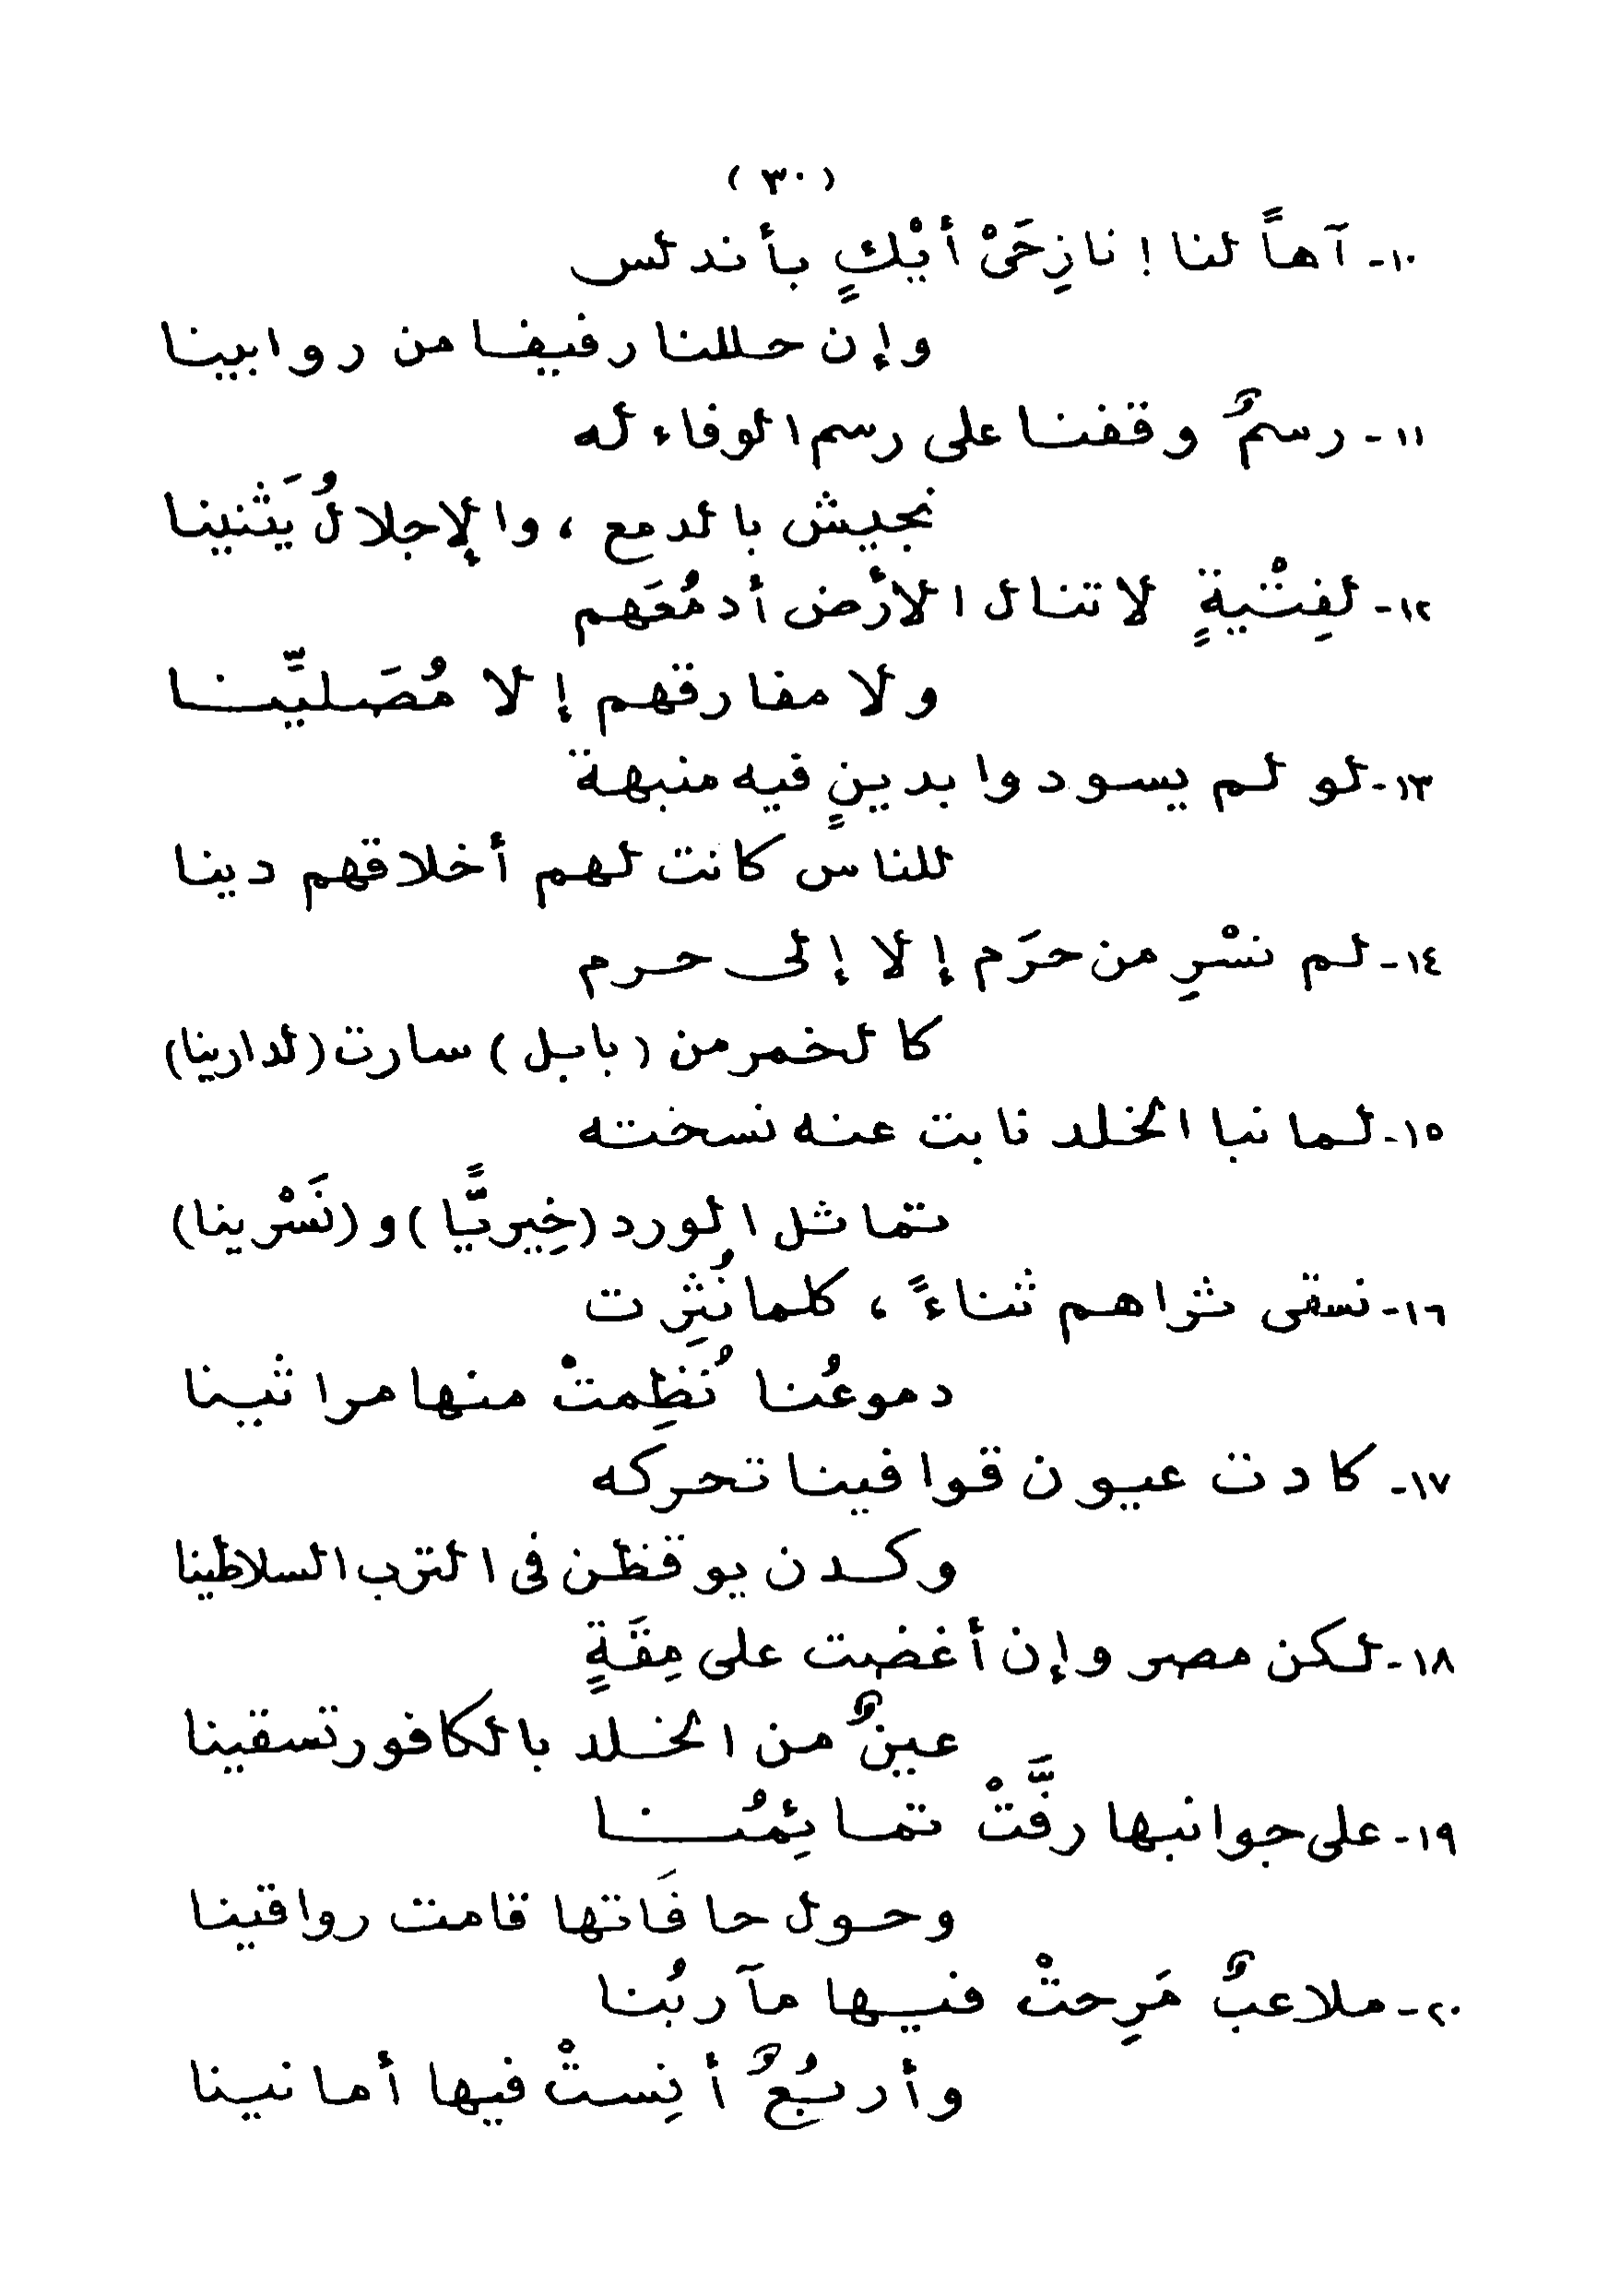 ( ٣٠ )
١٠- آهاً لنا ! نازِحَىْ أيْكٍ بأندلس
وإن حللنا رفيفا من روابينا
١١- رسمٌ وقفنا على رسم الوفاء له
نجيش بالدمع ، والإجلالُ يَثنينا
١٢- لفِتْيةٍ لا تنال الأرْض أدمُعَهم
ولا مفارقهم إلا مُصَليِّنا
١٣- لو لم يسودوا بدينٍ فيه منبهة
للناس كانت لهم أخلاقهم دينا
١٤- لم نسْرِ من حرَم إلا إلى حرم
كالخمر من (بابل) سارت (لدارينا)
١٥- لما نبا الخلد نابت عنه نسخته
تماثل الورد (خِيريًّا) و (نَسْرينا)
١٦- نسقى ثراهم ثناءً ، كلما نُثِرت
دموعُنا نُظِمتْ منها مراثينا
١٧- كادت عيون قوافينا تحركه
وكدن يوقظن فى الترب السلاطينا
١٨- لكن مصر وإن أغضت على مِقَةٍ
عينٌ من الخلد بالكافور تسقينا
١٩- على جوانبها رفَّتْ تمائِمُنا
وحول حافَاتها قامت رواقينا
٢٠- ملاعبٌ مَرِحتْ فيها مآربُنا
وأربُعٌ أنِستْ فيها أمانينا